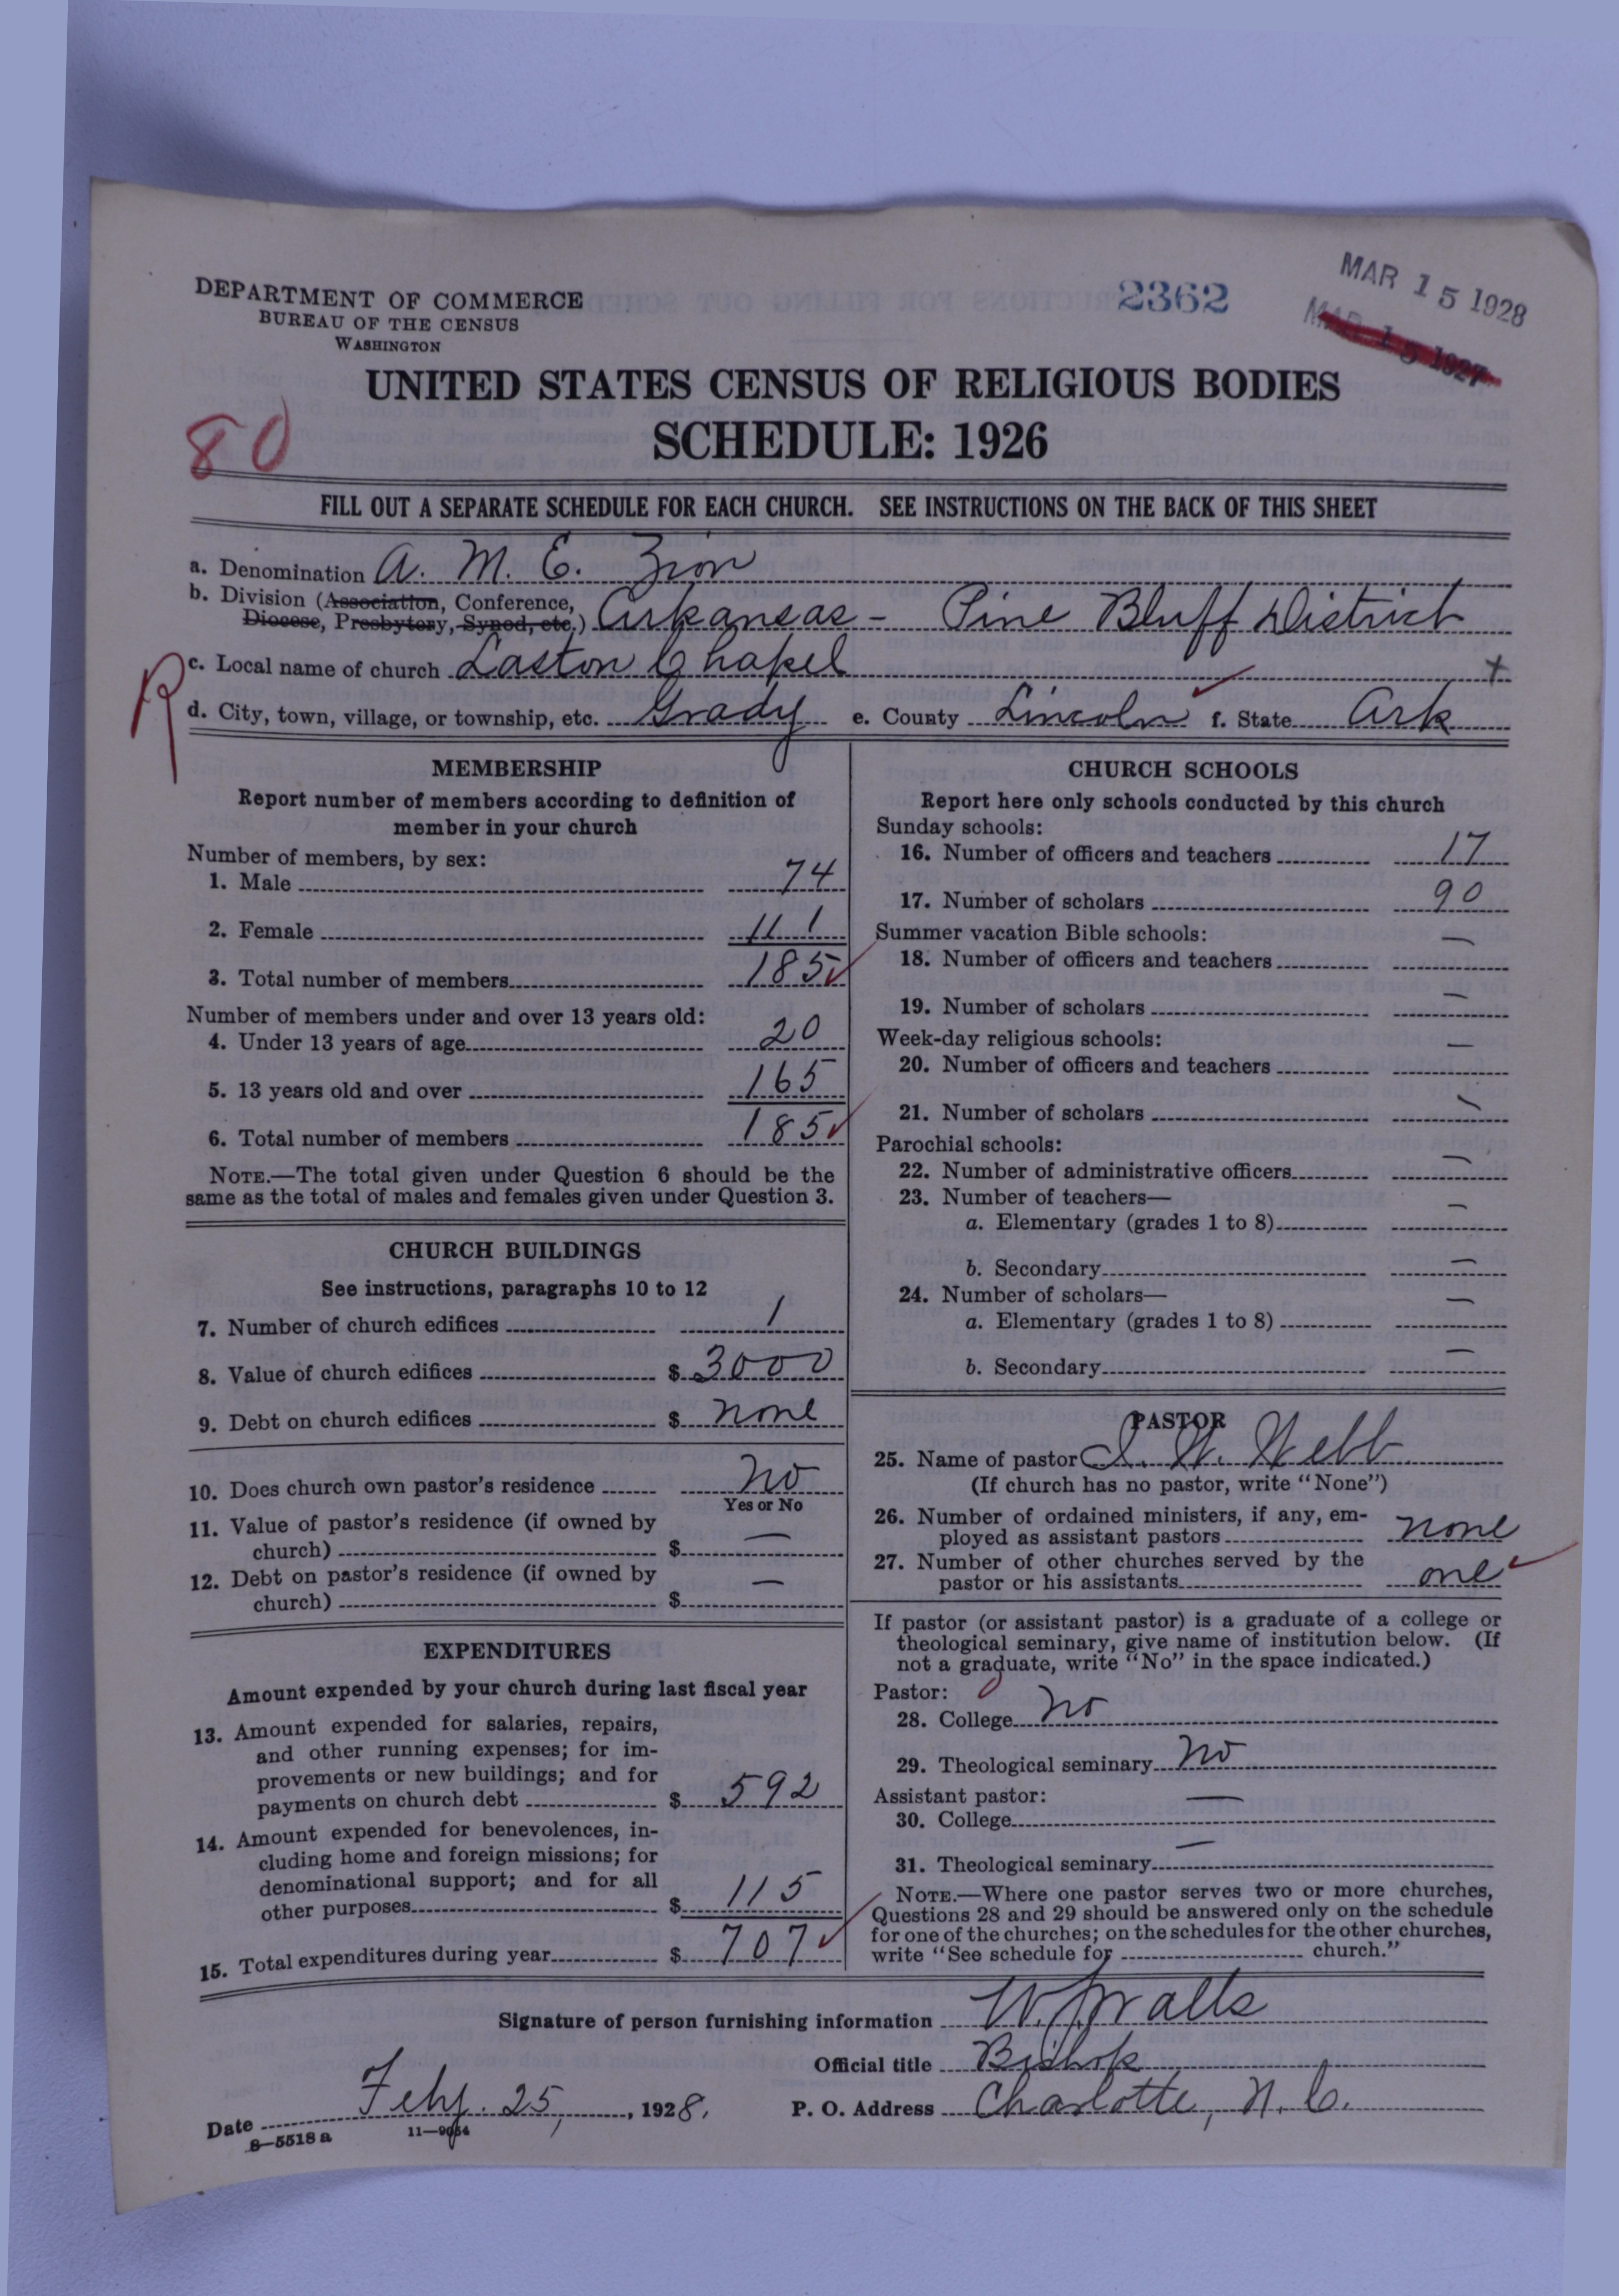 DEPARTMENT OF COMMERCE
BUREAU OF THE CENSUS
WASHINGTON
2362
MAR 15 1928
MAR 15 1927
UNITED STATES CENSUS OF RELIGIOUS BODIES
SCHEDULE: 1926
80
FILL OUT A SEPARATE SCHEDULE FOR EACH CHURCH. SEE INSTRUCTIONS ON THE BACK OF THIS SHEET
a. Denomination A. M. E. Zion
b. Division (Association, Conference,
Diocese, Presbytery, Synod, etc.) Arkansas - Pine Bluff District
R
c. Local name of church Laston Chapel +
d. City, town, village, or township, etc. Grady e. County Lincoln f. State Ark
MEMBERSHIP
Report number of members according to definition of
member in your church
Number of members, by sex:
1. Male 74
2. Female 111
3. Total number of members 185
Number of members under and over 13 years old:
4. Under 13 years of age 20
5. 13 years old and over 165
6. Total number of members 185
NOTE.—The total given under Question 6 should be the
same as the total of males and females given under Question 3.
CHURCH BUILDINGS
See instructions, paragraphs 10 to 12
7. Number of church edifices 1
8. Value of church edifices $ 3000
9. Debt on church edifices $ none
10. Does church own pastor's residence no
Yes or No
11. Value of pastor's residence (if owned by
church) $ —
12. Debt on pastor's residence (if owned by
church) $ —
EXPENDITURES
Amount expended by your church during last fiscal year
13. Amount expended for salaries, repairs,
and other running expenses; for im-
provements or new buildings; and for
payments on church debt $ 592
14. Amount expended for benevolences, in-
cluding home and foreign missions; for
denominational support; and for all
other purposes $ 115
15. Total expenditures during year $ 707
CHURCH SCHOOLS
Report here only schools conducted by this church
Sunday schools:
16. Number of officers and teachers 17
17. Number of scholars 90
Summer vacation Bible schools:
18. Number of officers and teachers —
19. Number of scholars —
Week-day religious schools:
20. Number of officers and teachers —
21. Number of scholars —
Parochial schools:
22. Number of administrative officers —
23. Number of teachers—
a. Elementary (grades 1 to 8) —
b. Secondary —
24. Number of scholars—
a. Elementary (grades 1 to 8) —
b. Secondary —
PASTOR
25. Name of pastor I. W. Webb
(If church has no pastor, write "None")
26. Number of ordained ministers, if any, em-
ployed as assistant pastors none
27. Number of other churches served by the
pastor or his assistants one
If pastor (or assistant pastor) is a graduate of a college or
theological seminary, give name of institution below. (If
not a graduate, write "No" in the space indicated.)
Pastor: 0
28. College No
29. Theological seminary No
Assistant pastor:
30. College —
31. Theological seminary —
NOTE.—Where one pastor serves two or more churches,
Questions 28 and 29 should be answered only on the schedule
for one of the churches; on the schedules for the other churches,
write "See schedule for church."
Signature of person furnishing information W. J. Walls
Official title Bishop
Date Feby. 25, 1928. P. O. Address Charlotte, N. C.
8—5518 a 11—9054